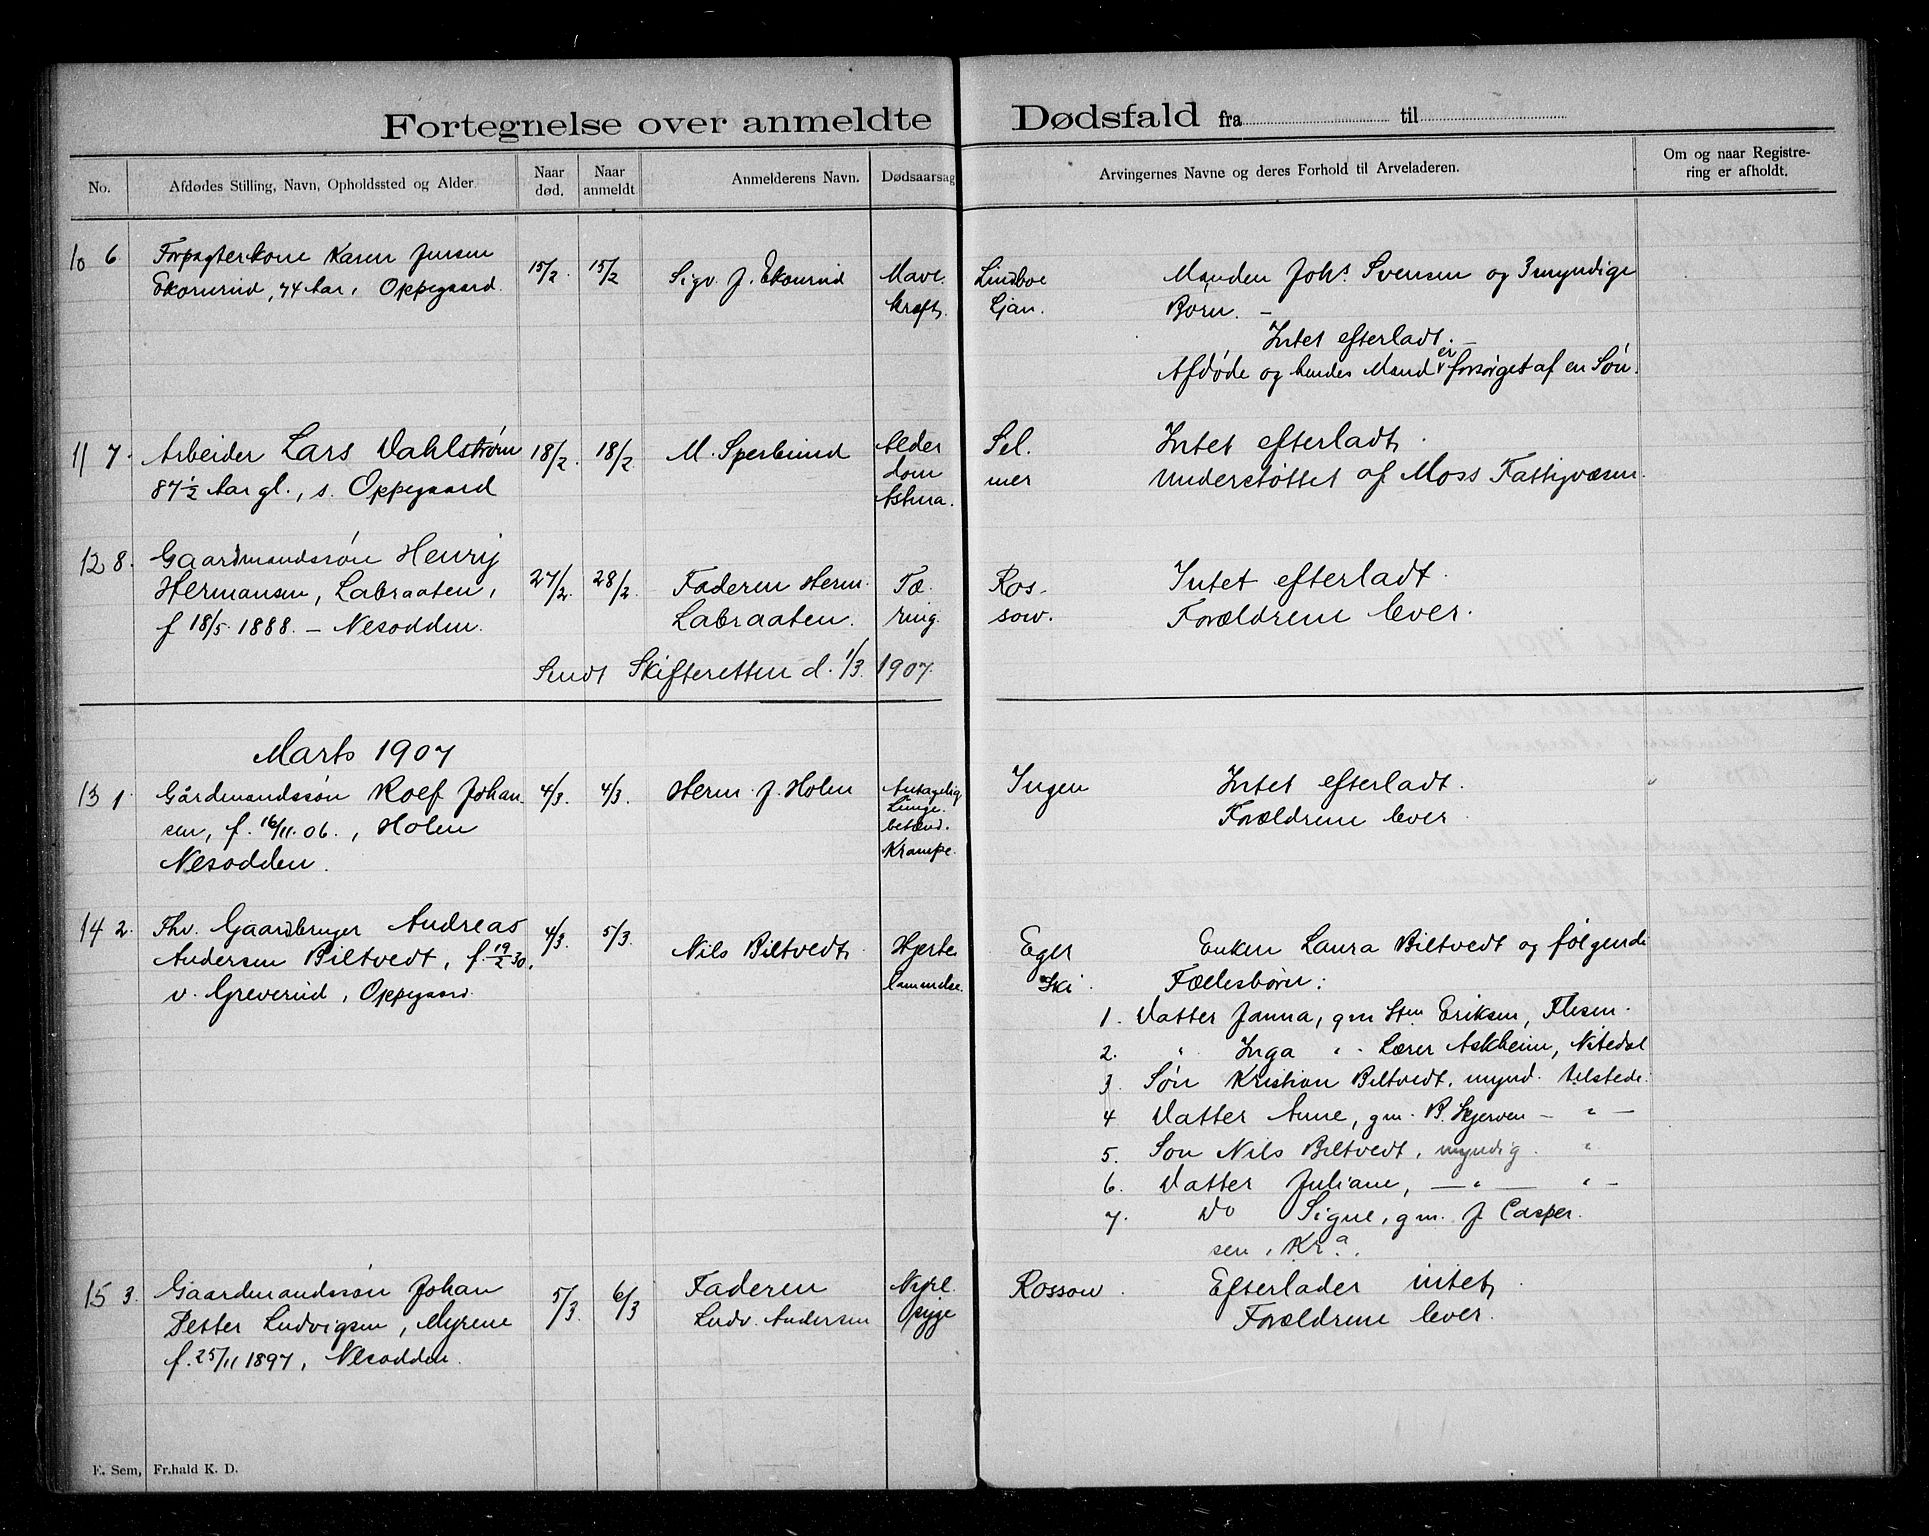 Fortegnelse over anmeldte Dødsfald fra til
No. Afdødes Stilling, Navn, Opholdssted og Alder. Naar død. Naar anmeldt Anmelderens Navn. Dødsaarsag Arvingernes Navne og deres Forhold til Arveladeren. Om og naar Registrering er afholdt.
10 6 Forpagterkone Karen Jensen 15/2. 15/2 Sigv. J. Ekornrud Mave Lindboe Manden Johs. Svensen og 3 myndige
Ekornrud, 74 Aar, Oppegaard. kræft. Ljan. Børn. –
Intet efterladt. –
Afdøde og hendes Mand er forsørget af en Søn.
11 7. Arbeider Lars Dahlstrøm 18/2. 18/2 M. Sperlund Alder Sel. Intet efterladt.
87½ Aar gl., s. Oppegaard dom mer Understøttet af Moss Fattigvæsen
Astma.
12 8. Gaardmandssøn Henry 27/2 28/2 Faderen Herm. Tæ. Ros- Intet efterladt.
Hermansen, Labraaten, Labraaten. ring. sow. Forældrene lever.
f 18/5 1888. – Nesodden.
Sendt Skifteretten d. 1/3 1907.
Marts 1907
13 1. Gårdmandssøn Roef Johan 4/3. 4/3. Herm. J. Holen Antagelig Ingen Intet efterladt.
sen, f. 16/11.06., Holen Lunge. Forældrene lever
Nesodden. betænd.
Krampe.
14 2. Fhv. Gaardbruger Andreas 4/3. 5/3. Nils Biltvedt Hjerte Eger Enken Laura Biltvedt og følgende
Andersen Biltvedt, f. 19/2 30. lammelse. Ski. Fællesbørn:
v. Greverud, Oppegaard.
1. Datter Janna, gm Stm Eriksen, Flesen.
2. " Inga " . Lærer Askheim, Nitedal
3. Søn Kristian Biltvedt, mynd. tilstede.
4 Datter Anne, gm. B. Skjerven – " –
5. Søn Nils Biltvedt, myndig. "
6. Datter Juliane, – " – " –
7. Do Signe, gm. J. Casper.
sen, Kra.
15 3. Gaardmandssøn Johan 5/3. 6/3 Faderen Nyre. Rossow. Efterlader intet.
Petter Ludvigsen, Myrene Ludv. Andersen syge Forældrene lever.
f. 25/11 1897, Nesodden.
E. Sem, Fr.hald K. D.